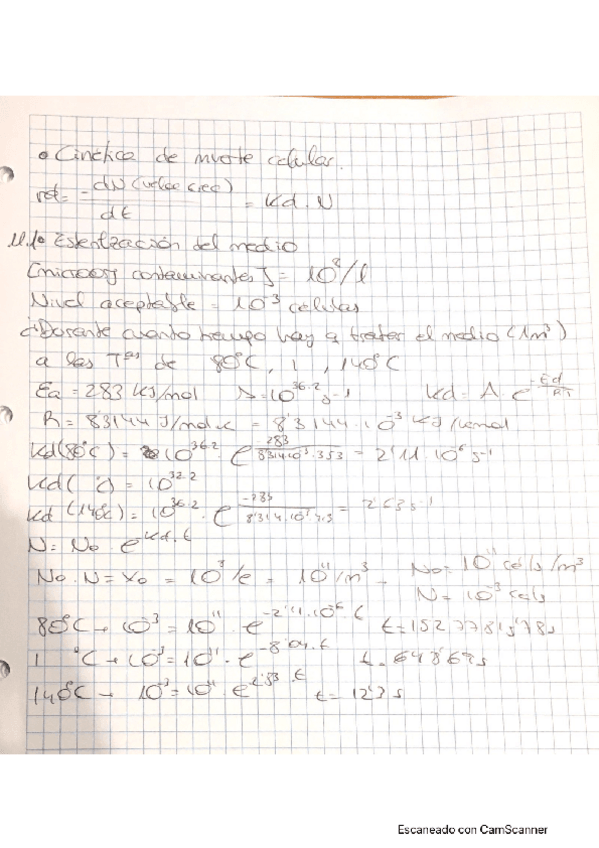 • Cinética de muerte celular.
rd = -dN (veloc crec) / dt = Kd · N
11.1. Esterilización del medio
[microorg contaminantes] = 10^8/l
Nivel aceptable = 10^-3 células
¿Durante cuanto tiempo hay q tratar el medio (1m^3)
a las Tªs de 80ºC, 1 , 140ºC
Ea = 283 KJ/mol A = 10^36.2 s^-1 Kd = A · e^-Ed/RT
R = 8'3144 J/mol·K = 8'3144·10^-3 KJ/Kmol
Kd(80ºC) = 10^36.2 · e^-283/8'314·10^-3·353 = 2'11·10^-6 s^-1
Kd( ºC) = 10^32.2
Kd (140ºC) = 10^36.2 · e = s^-1
N = No · e^Kd·t
No · N = Xo = /l = 10^11/m^3 No = 10^11 céls/m^3
N = 10^-3 cels
80ºC → 10^-3 = 10^11 · e^-2'11·10^-6·t t = 15277815'78s
1 ºC → 10^-3 = 10^11 · e t =
140ºC → 10^-3 = 10^11 · e t = 12'3 s
Escaneado con CamScanner